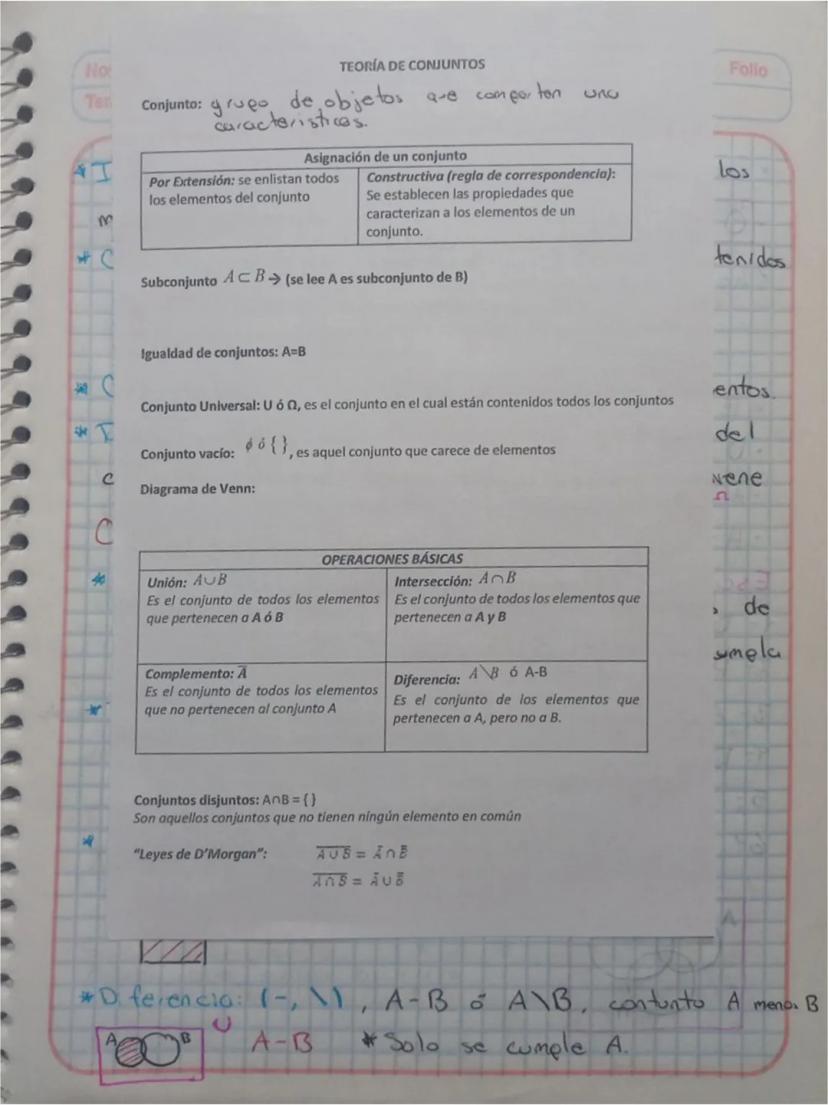 TEORÍA DE CONJUNTOS
Folio
Conjunto: grupo de objetos que comparten una
caracteristicas.
Asignación de un conjunto
Por Extensión: se enlistan todos
los elementos del conjunto
Constructiva (regla de correspondencia):
Se establecen las propiedades que
caracterizan a los elementos de un
conjunto.
los
tenidos
Subconjunto A ⊂ B → (se lee A es subconjunto de B)
Igualdad de conjuntos: A=B
entos.
Conjunto Universal: U ó Ω, es el conjunto en el cual están contenidos todos los conjuntos
del
Conjunto vacío: ϕ ó { }, es aquel conjunto que carece de elementos
Diagrama de Venn:
Ω
OPERACIONES BÁSICAS
Unión: A∪B
Es el conjunto de todos los elementos
que pertenecen a A ó B
Intersección: A∩B
Es el conjunto de todos los elementos que
pertenecen a A y B
, de
Complemento: A̅
Es el conjunto de todos los elementos
que no pertenecen al conjunto A
Diferencia: A\B ó A-B
Es el conjunto de los elementos que
pertenecen a A, pero no a B.
Conjuntos disjuntos: A∩B = { }
Son aquellos conjuntos que no tienen ningún elemento en común
"Leyes de D'Morgan": A̅ ̅∪̅ ̅B̅ = A̅ ∩ B̅
A̅ ̅∩̅ ̅B̅ = A̅ ∪ B̅
*Diferencia: (-, \), A-B ó A\B, conjunto A menos B
A B U A-B *Solo se cumple A.